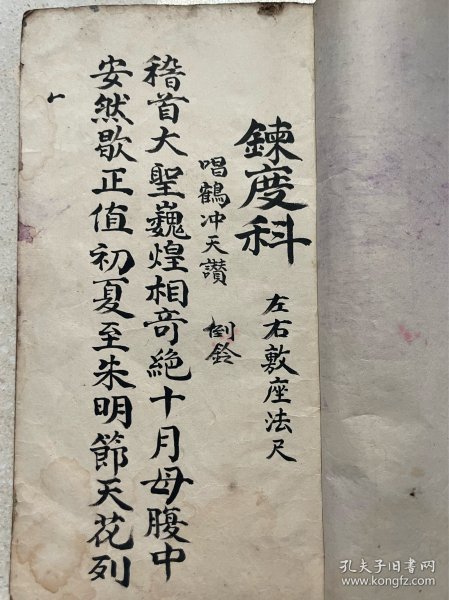 鍊度科 左右敷座法尺
唱鶴冲天讚 倒鈴
稽首大聖巍煌相奇絶十月母腹中
安然歇正值初夏至朱明節天花列
孔夫子旧书网
www.kongfz.com